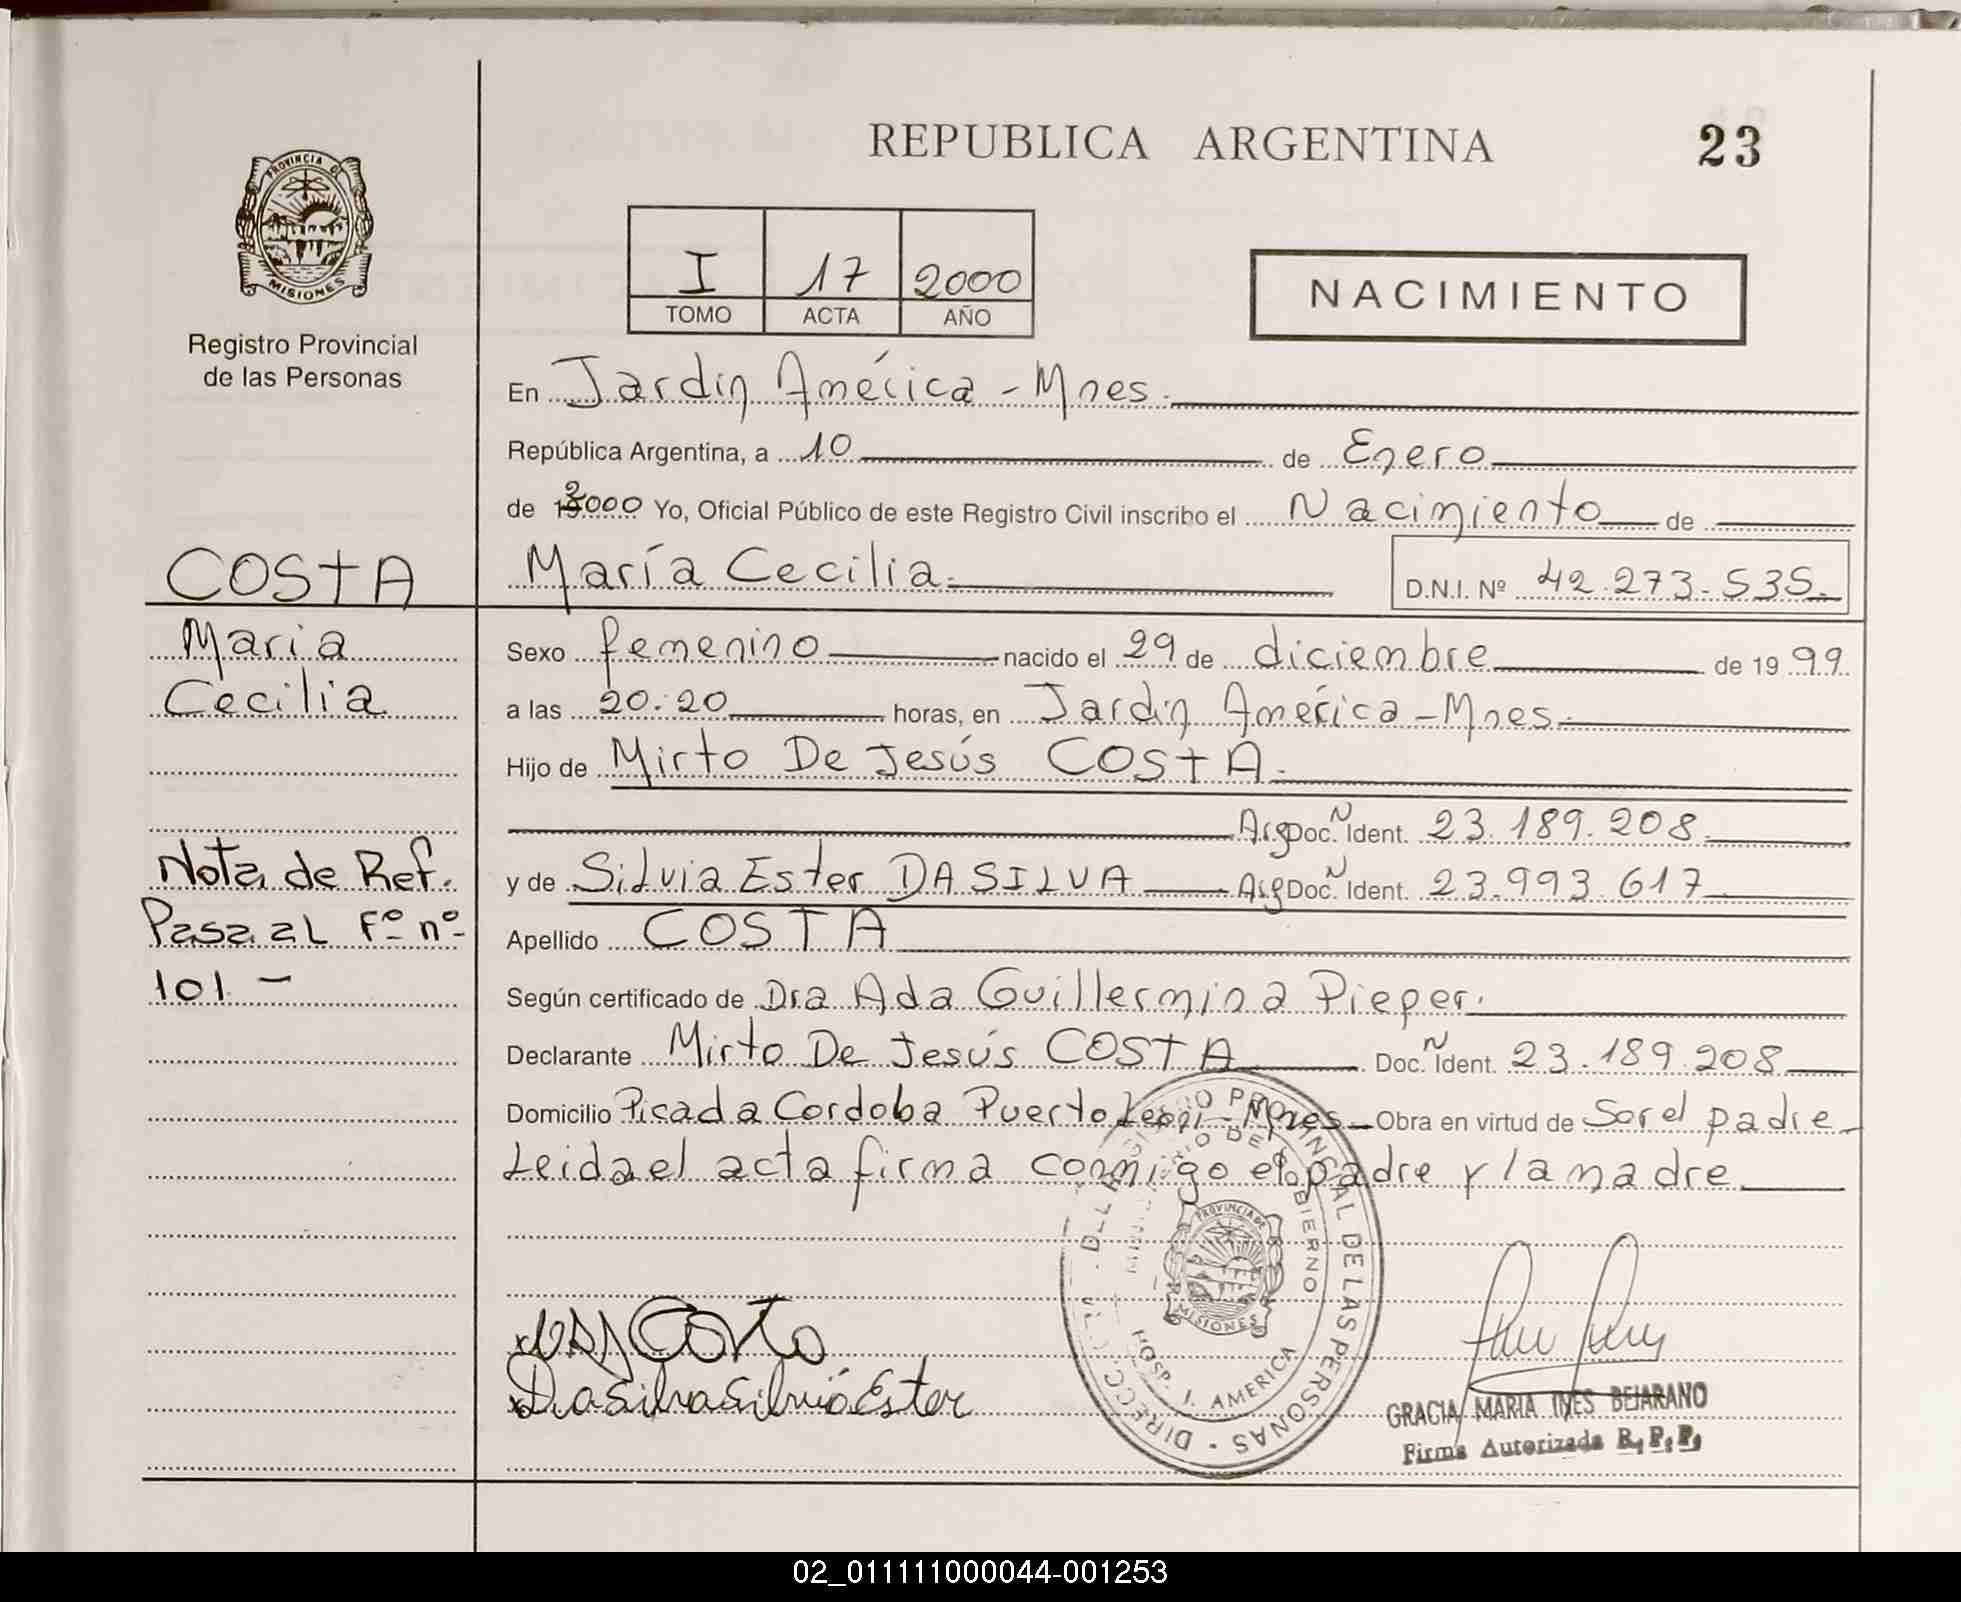 REPUBLICA ARGENTINA
23
PROVINCIA DE
MISIONES
Registro Provincial
de las Personas
I 17 2000
TOMO ACTA AÑO
NACIMIENTO
En Jardín América - Mnes.
República Argentina, a 10 de Enero
de 2000 Yo, Oficial Público de este Registro Civil inscribo el Nacimiento de
María Cecilia.
D.N.I. Nº 42.273.535.
COSTA
Maria
Cecilia
Sexo femenino nacido el 29 de diciembre de 1999
a las 20:20 horas, en Jardín América - Mnes.
Hijo de Mirto De Jesús COSTA.
Arg Doc. N Ident. 23.189.208.
y de Silvia Ester DA SILVA Arg Doc. N Ident. 23.993.617
Apellido COSTA
Según certificado de Dra Ada Guillermina Pieper.
Declarante Mirto De Jesús COSTA Doc. N Ident. 23.189.208
Domicilio Picada Cordoba Puerto Leoni - Mnes - Obra en virtud de Ser el padre -
Leida el acta firma conmigo el padre y la madre
Nota de Ref.
Pasa al Fº nº
101 -
Costa
Da Silva Silvia Ester
DIRECC DEL REGISTRO PROVINCIAL DE LAS PERSONAS
MINISTERIO DE GOBIERNO
PROVINCIA DE
MISIONES
HOSP. J. AMERICA
GRACIA MARIA INES BEJARANO
Firma Autorizada R.P.P.
02_011111000044-001253